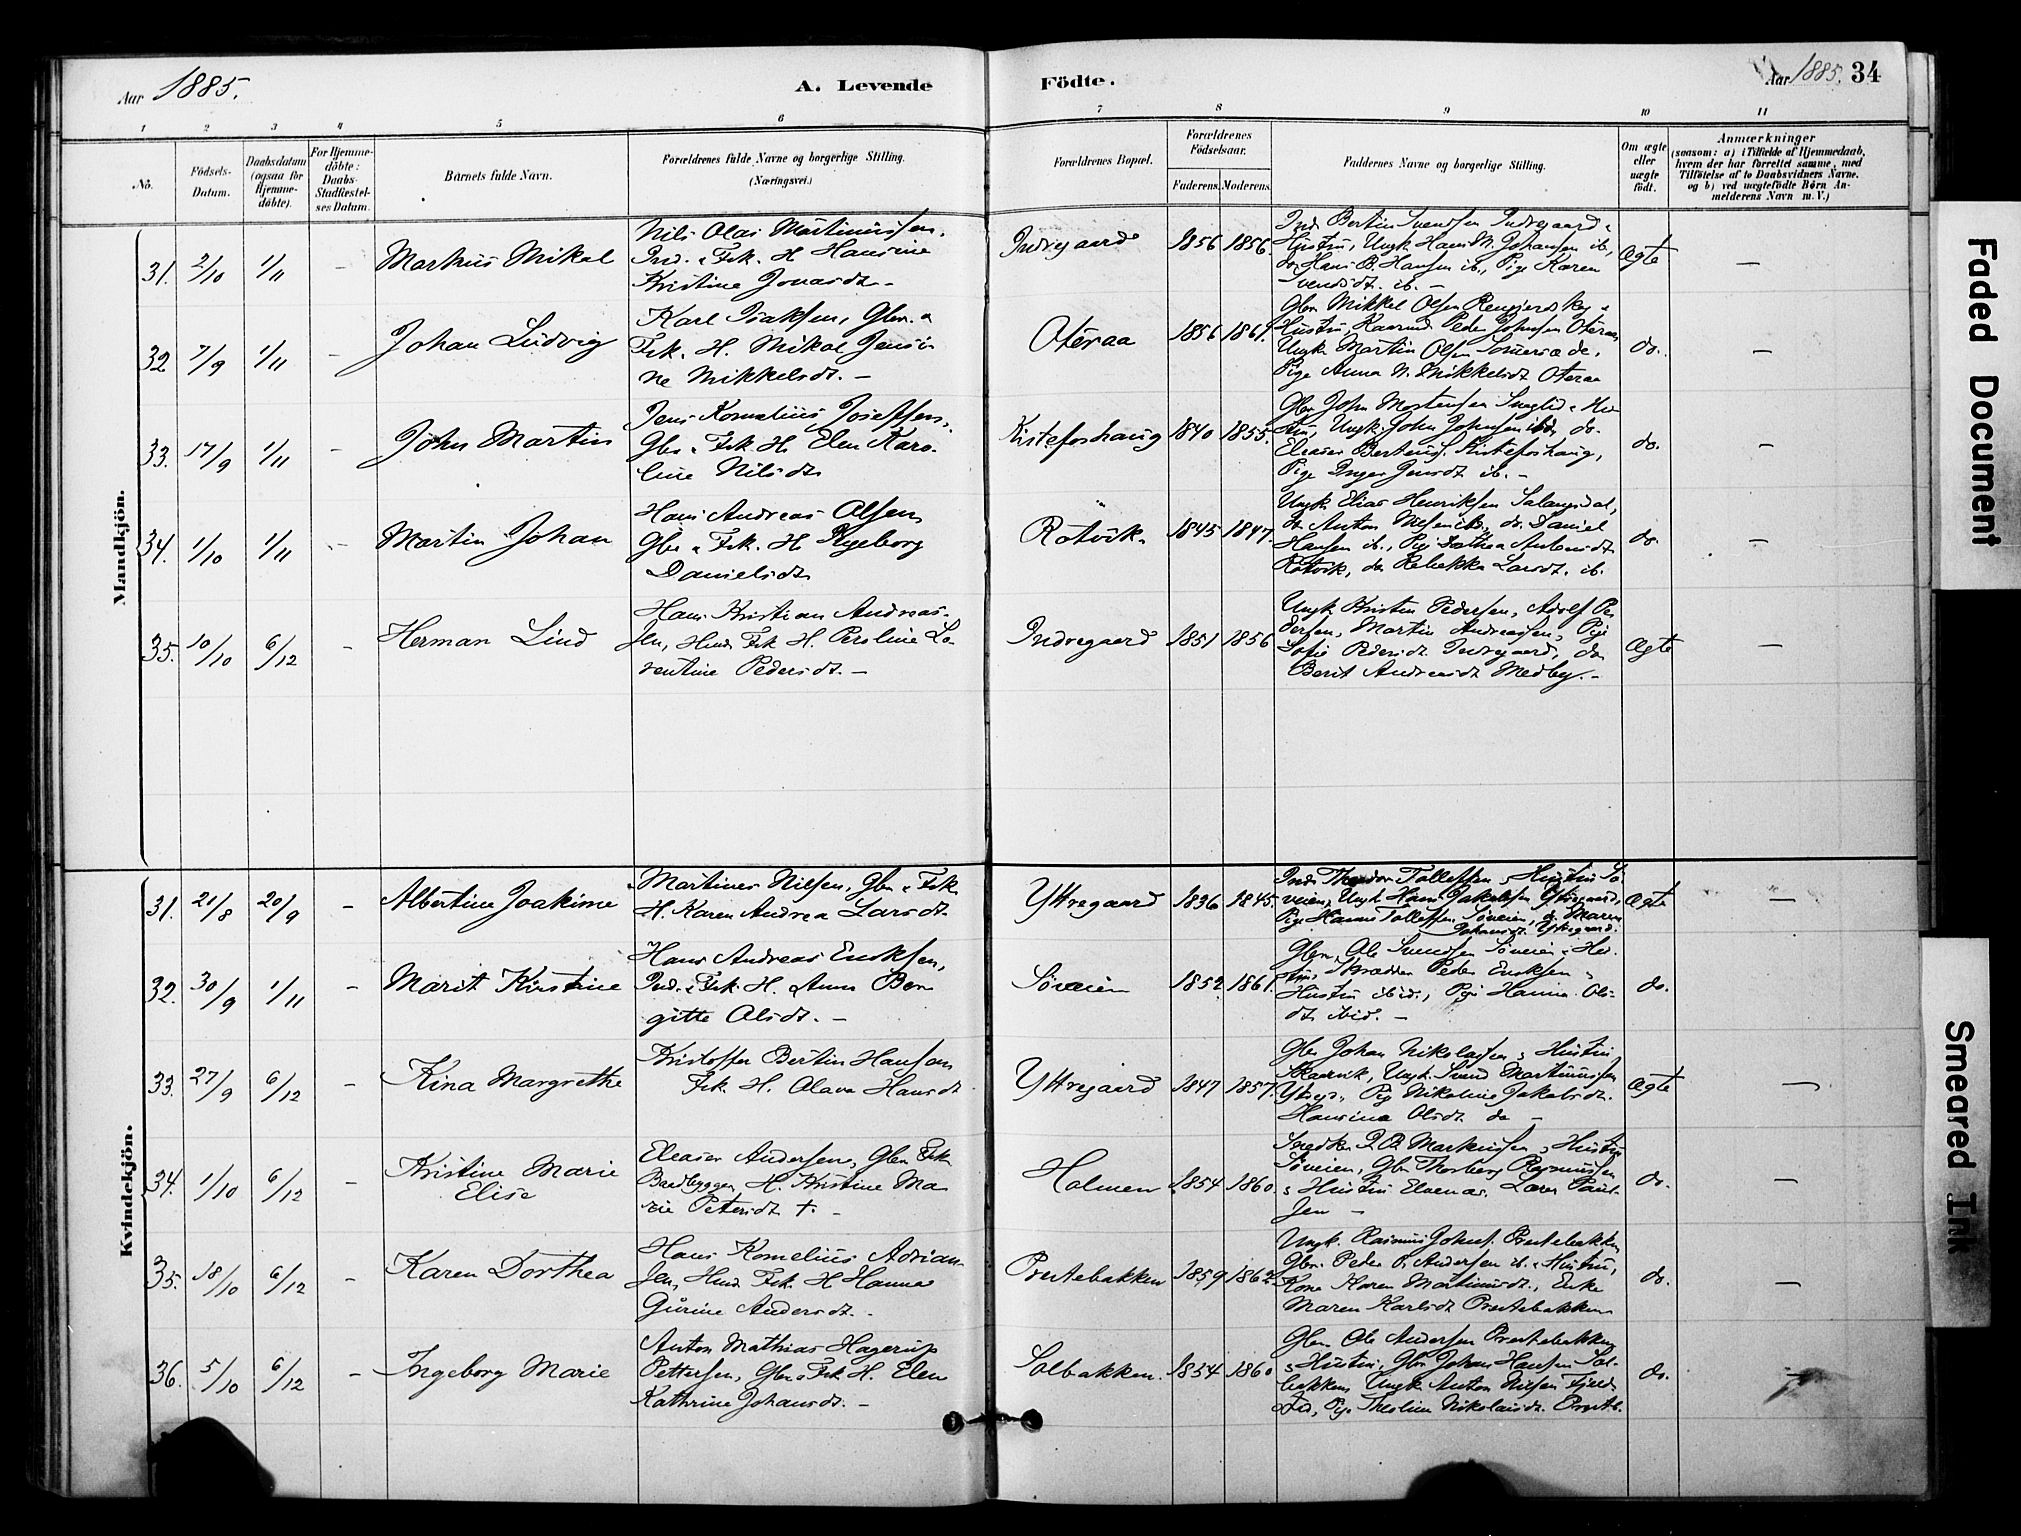 Aar 1885.
A. Levende
Födte.
Aar 1885. 34
1 2 3 4 5 6 7 8 9 10 11
No.
Födsels-Datum.
Daabsdatum (ogsaa for Hjemme-döbte).
For Hjemme-döbte: Daabs-Stadfæstel-ses Datum.
Barnets fulde Navn.
Forældrenes fulde Navne og borgerlige Stilling. (Næringsvei.)
Forældrenes Bopæl.
Forældrenes Födselsaar.
Faderens. Moderens.
Faddernes Navne og borgerlige Stilling.
Om ægte eller uægte födt.
Anmærkninger
(saasom: a) i Tilfælde af Hjemmedaab,
hvem der har forrettet samme, med
Tilföielse af to Daabsvidners Navne.
og b) ved uægtefödte Börn An-
melderens Navn m. V.)
Mandkjön.
31. 2/10 1/11 – Markus Mikal
Nils Olai Martinussen,
Ind. & Frk. H. Hansine
Kristine Jonasdt. –
Indregaard 1856 1856.
Ind. Bertin Svendsen Indregaard &
Hustru, Ungk. Hans M. Johansen ib.,
do Hans B. Hansen ib., Pige Karen
Svendsdt. ib. –
Ægte –
32 7/9 1/11 – Johan Ludvig
Karl Isaksen, Gbr. &
Frk. H. Mikal Jensi-
ne Mikkelsdt. –
Oteraa 1856 1861.
Gbr Mikkel Olsen &
Hustru, Peder Johnsen Oteraa,
Ungk. Martin Olsen
Pige Anna M. Mikkelsdt. Oteraa
do. –
33. 17/9 1/11 – John Martin
Jens Kornelius Josefsen,
Gbr & Frk. H. Elen Karo-
line Nilsdt.
Kisteforshaug 1840 1855.
Gbr John Mortensen & Hu-
stru, Ungk. John Johnsen ibd, do.
Eleaser Berteus. Kisteforshaug,
Pige Inger Jensdt. ib. –
do. –
34. 1/10 1/11 – Martin Johan
Hans Andreas Olsen,
Gbr & Frk. H.
Danielsdt.
Rotvik. 1845 1847.
Ungk. Elias Henriksen Salangsdal,
do Anton Nilsen ib., do. Daniel
Hansen ib., Pige Dorthea
Rotvik, do Rebekka Larsdt. ib.
do. –
35. 10/10 6/12 – Herman Lind
Hans Kristian Andreas-
sen, Hmd. Frk. H. Peroline La-
rentine Pedersdt. –
Indregaard 1851 1856
Ungk. Kristen Pedersen, Adolf Pe-
dersen, Martin Andreassen, Pige
Sofie Pedersdt Indregaard, do
Berit Andreasdt Medby. –
Ægte –
Kvindekjön.
31. 21/8 20/9 – Albertine Joakime
Martinus Nilsen, Gbr. & Frk.
H. Karen Andrea Larsdt.
Yttregaard 1836 1845.
Ind. Theodor Tollefsen & Hustru Sø-
veien, Ungk. Hans Jakobsen Yttregaard,
Pige Hanna Tollefsen Søveien, do. Maren
Johansdt. Yttregaard.
Ægte –
32. 30/9 1/11 – Marit Kirstine
Hans Andreas Eriksen,
Ind. & Frk. H. Anna Ber-
gitte Olsdt. –
Søveien 1852 1861.
Gbr. Ole Svendsen Søveien & Hu-
stru, Skrædder Peder Eriksen &
Hustru ibid., Pige Hanna Ols-
dt. ibid. –
do. –
33. 27/9 6/12 – Kina Margrethe
Kristoffer Bertin Hansen
Frk. H. Olava Hansdt.
Yttregaard 1847 1857.
Gbr Johan Nikolaisen & Hustru
Ungk. Svend Martinussen
Yttreg., Pig Nikoline Jakobsdt.
Hansina Olsdt. do –
Ægte –
34. 1/10 6/12 – Kristine Marie
Elise
Eleaser Andersen, Gbr. Frk.
Bardbyggen, H. Kristine Ma-
rie Petersdt. + –
Holmen 1854 1860.
Snedker Markussen & Hustru
Søveien, Gbr Thorberg Rasmussen
& Hustru Elvenæs. Lærer Paul-
sen –
do. –
35. 18/10 6/12 – Karen Dorthea
Hans Kornelius Adrian-
sen, Hmd. Frk. H. Hanna
Gurine Andersdt. –
Prestebakken 1859 1862
Ungk. Rasmus Johnsen. Prestebakken,
Gbr. Peder P. Andersen ib. & Hustru,
Kone Karen Martinusdt., Enke
Maren Karlsdt Prestebakken
do. –
36. 5/10 6/12 – Ingeborg Marie
Anton Mathias Hagerup
Pettersen, Gbr & Frk. H. Elen
Kathrine Johansdt. –
Solbakken. 1854 1860
Gbr. Ole Andersen Prestebakken
& Hustru, Gbr Johan Hansen Sol-
bakken, Ungk. Anton Nilsen
Pige Nikolaisdt. Prestb.
do. –
Faded Document
Smeared Ink